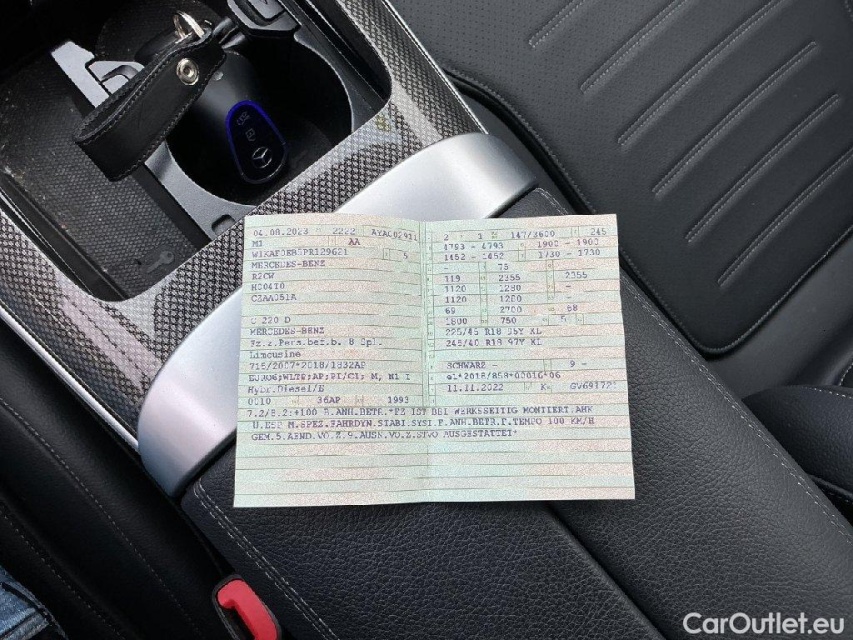 04.08.2023 2222 AYAC02911
M1 AA
W1KAF0EB3PR129621 5
MERCEDES-BENZ
R2CW
H004T0
CZAA051A
C 220 D
MERCEDES-BENZ
Fz.z.Pers.bef.b. 8 Spl.
Limousine
715/2007*2018/1832AP
EURO6;WLTP;AP;PI/CI; M, N1 I
Hybr.Diesel/E
0010 36AP 1993
2 1 147/3600 245
1793 - 4793 1900 - 1900
1452 - 1452 1730 - 1730
- 75
119 2355 2355
1120 1280 -
1120 1280 -
69 2700 68
1800 750 5 -
225/45 R18 95Y XL
245/40 R18 97Y XL
SCHWARZ 9 -
e1*2018/858*00016*06
11.11.2022 K GV69172
7.2/8.2:+100 B.ANH.BETR.*FZ IST BEI WERKSEITIG MONTIERT.AHK
U.ESP M.SPEZ.FAHRDYN.STABI.SYST.F.ANH.BETR.F.TEMPO 100 KM/H
GEM.5.AEND.VO.Z.9.AUSN.VO.Z.STVO AUSGESTATTET*
CarOutlet.eu